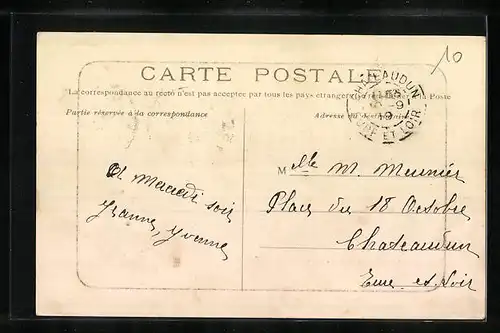 10
CARTE POSTALE
La correspondance au recto n'est pas acceptée par tous les pays étrangers
la Poste
Partie réservée à la correspondance
Adresse du destinataire
CHATEAUDUN
EURE ET LOIR
A Mardi soir
Jeanne, Yvonne
Melle M. Meunier
Place du 18 Octobre
Chateaudun
Eure et Loir